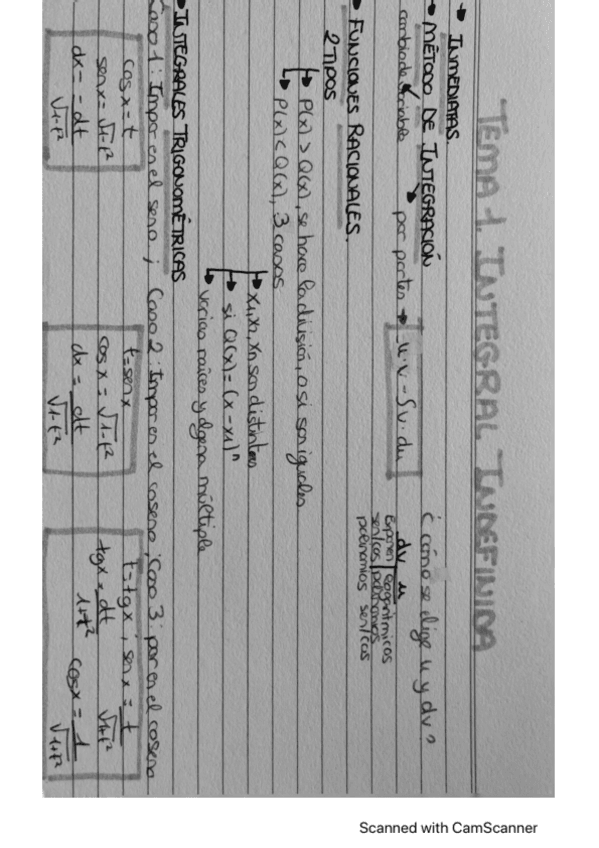 TEMA 1. INTEGRAL INDEFINIDA
→ INMEDIATAS.
→ MÉTODO DE INTEGRACIÓN
cambio de variables
por partes → u·v - ∫v·du
¿cómo se elige u y dv?
dv u
Expone logarítmicos
sen/cos polinomios
polinomios sen/cos
→ FUNCIONES RACIONALES.
2 TIPOS
↳ P(x) > Q(x), se hace la división, o si son iguales
↳ P(x) < Q(x), 3 casos
↳ x1, x2, xn son distintas
↳ si Q(x) = (x - x1)^n
↳ varias raíces y alguna múltiple
→ INTEGRALES TRIGONOMÉTRICAS
Caso 1: Impar en el seno ; Caso 2: Impar en el coseno ; Caso 3: par en el coseno
cos x = t
sen x = √1-t²
dx = - dt/√1-t²
t = sen x
cos x = √1-t²
dx = dt/√1-t²
t = tg x ; sen x = t/√1+t²
tg x = dt/1+t² cos x = 1/√1+t²
Scanned with CamScanner